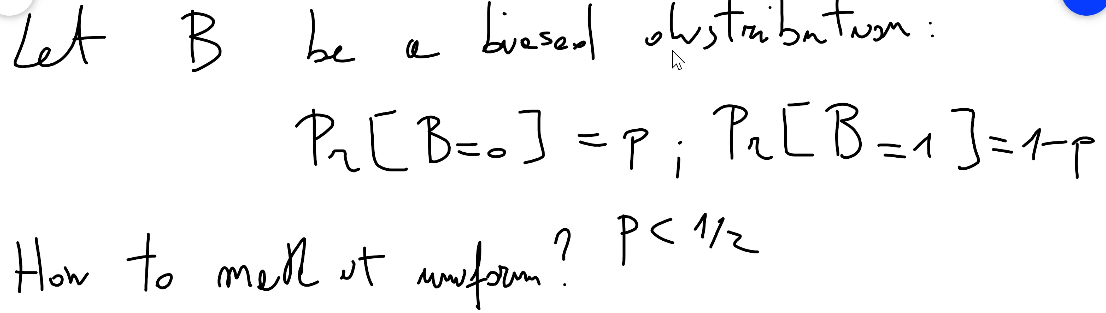 Let B be a biased distribution:
Pr[B=0] = p; Pr[B=1] = 1-p
How to make it uniform? p < 1/2